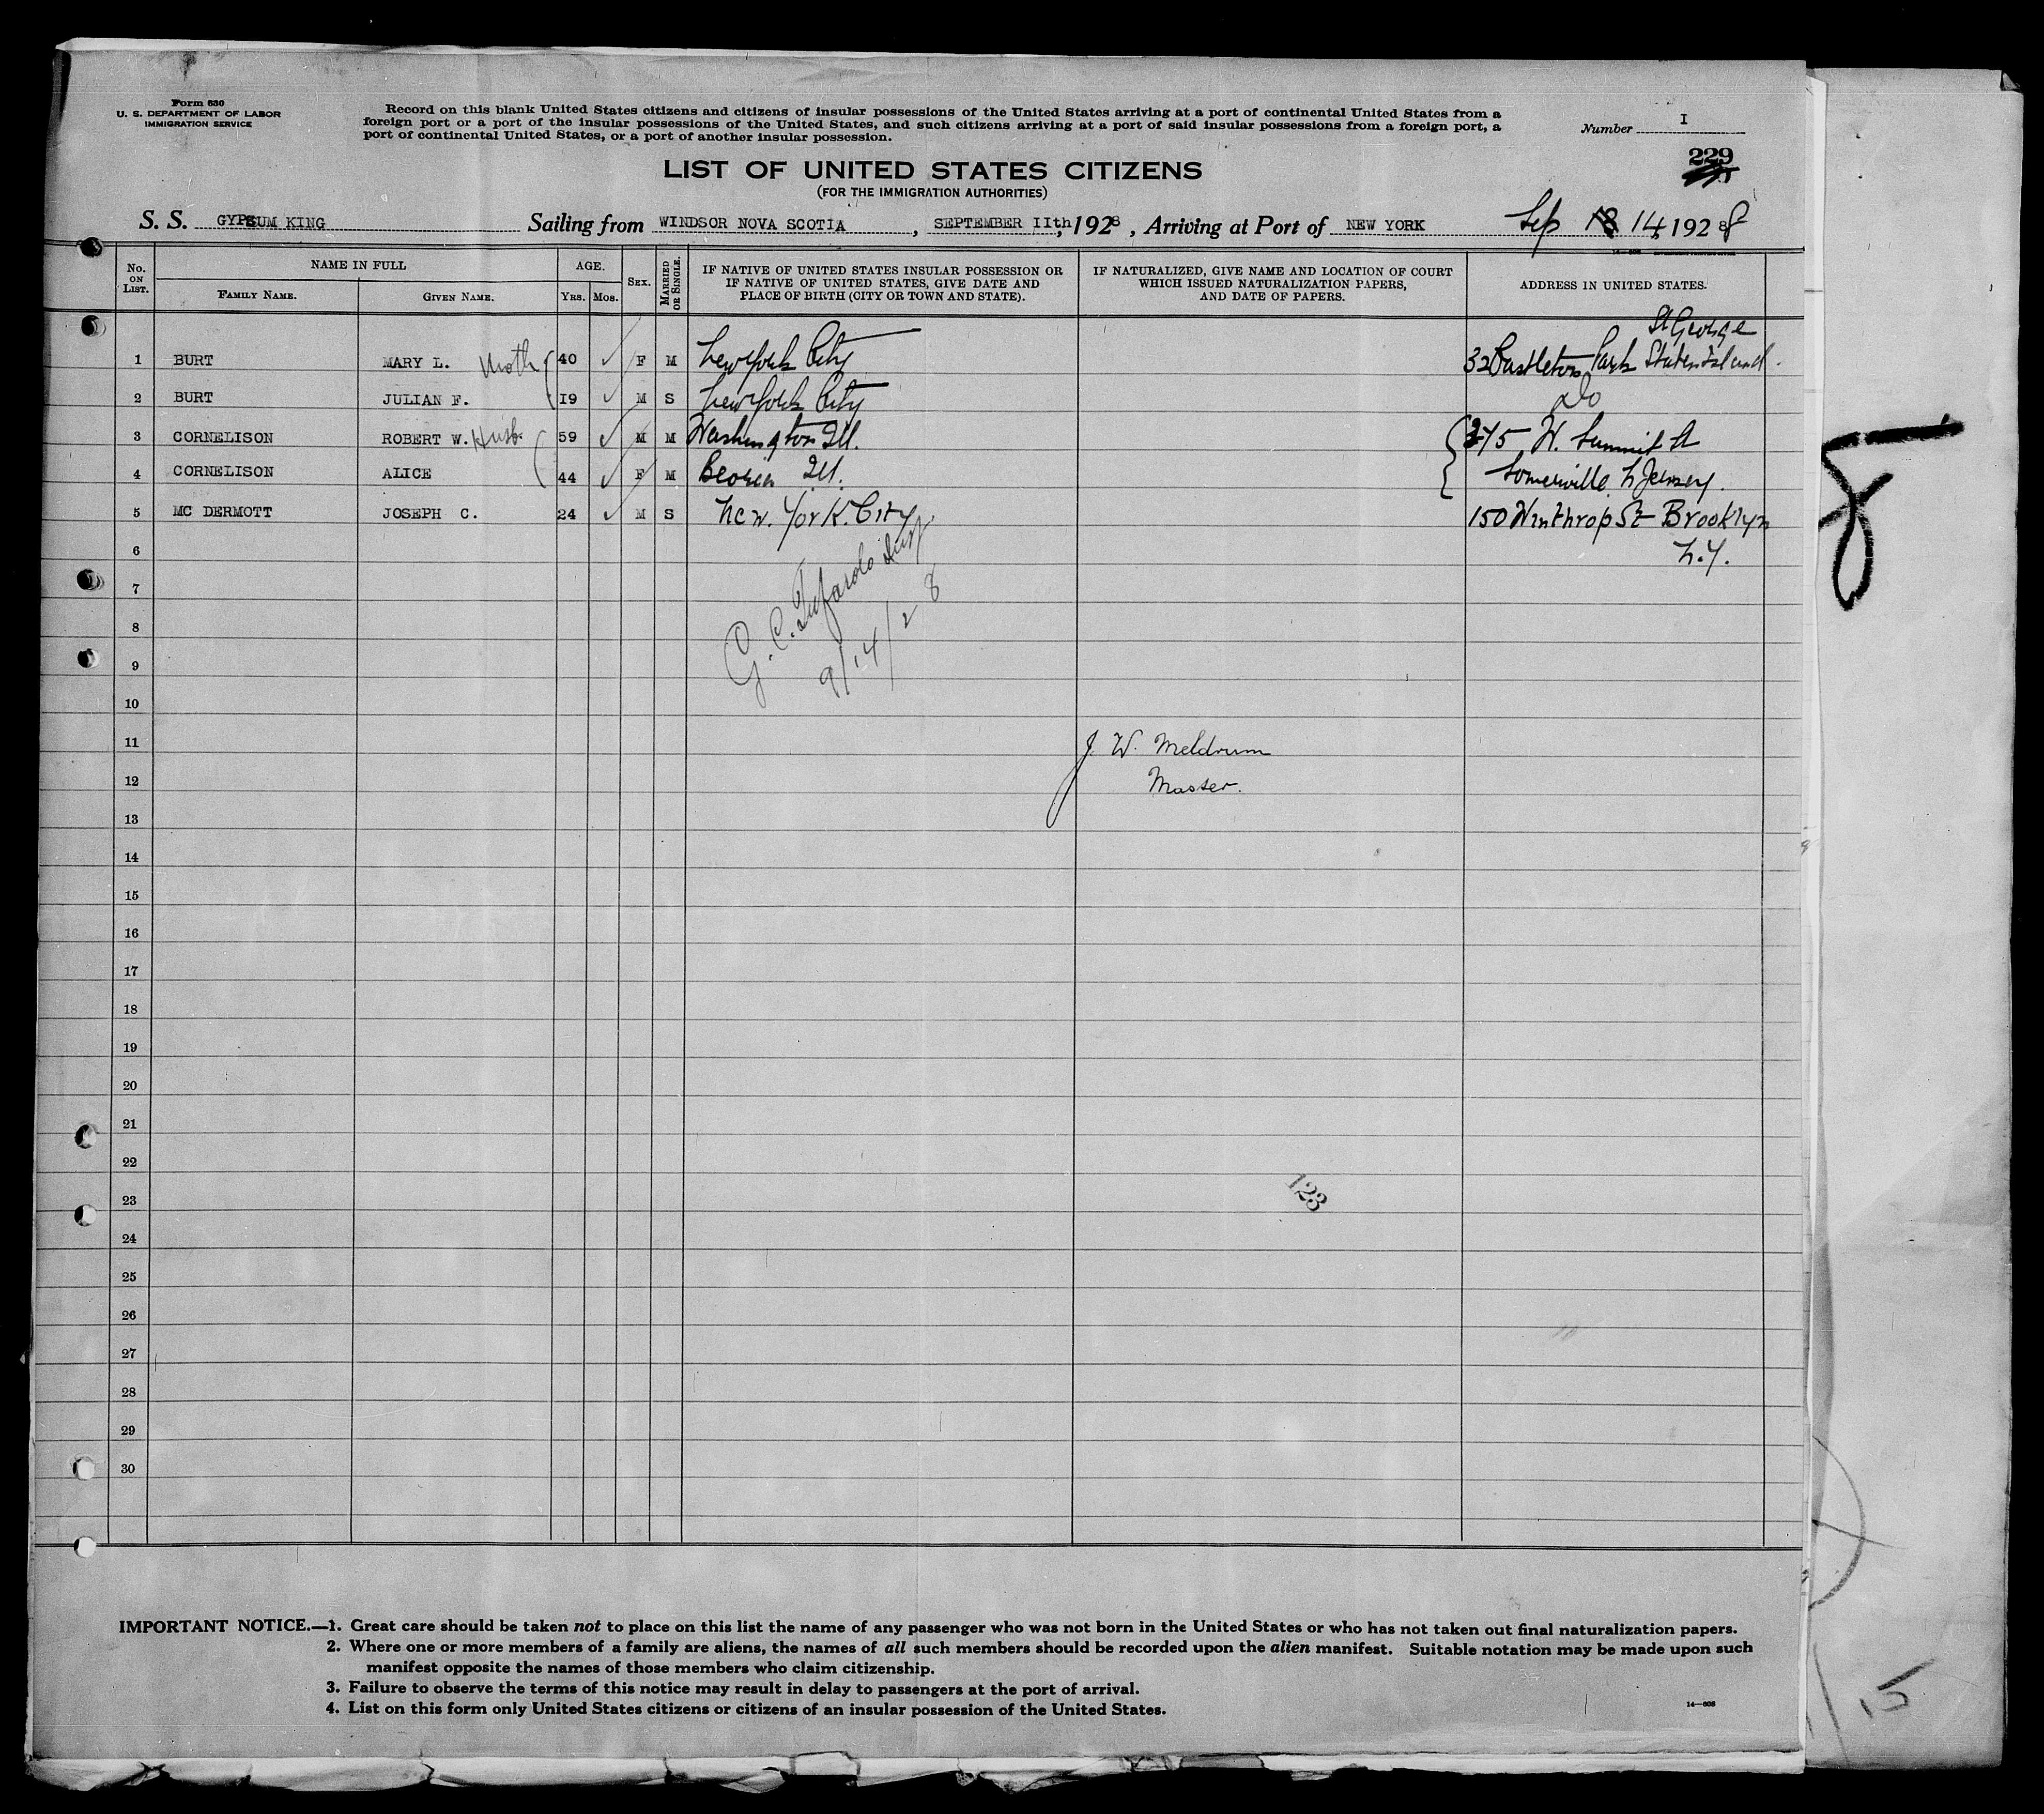 Form 630
U. S. DEPARTMENT OF LABOR
IMMIGRATION SERVICE
Record on this blank United States citizens and citizens of insular possessions of the United States arriving at a port of continental United States from a
foreign port or a port of the insular possessions of the United States, and such citizens arriving at a port of said insular possessions from a foreign port, a
port of continental United States, or a port of another insular possession.
Number I
229
LIST OF UNITED STATES CITIZENS
(FOR THE IMMIGRATION AUTHORITIES)
S. S. GYPSUM KING Sailing from WINDSOR NOVA SCOTIA, SEPTEMBER IIth, 1928, Arriving at Port of NEW YORK Sep 14, 1928
No. ON LIST. NAME IN FULL AGE. SEX. MARRIED OR SINGLE. IF NATIVE OF UNITED STATES INSULAR POSSESSION OR IF NATIVE OF UNITED STATES, GIVE DATE AND PLACE OF BIRTH (CITY OR TOWN AND STATE). IF NATURALIZED, GIVE NAME AND LOCATION OF COURT WHICH ISSUED NATURALIZATION PAPERS, AND DATE OF PAPERS. ADDRESS IN UNITED STATES.
FAMILY NAME. GIVEN NAME. YRS. MOS.
St George
1 BURT MARY L. Moth 40 ✓ F M New York City 32 Castleton Park Staten Island.
2 BURT JULIAN F. I9 ✓ M S New York City do
3 CORNELISON ROBERT W. Husb. 59 ✓ M M Washington Ill. 275 W. Summit St
4 CORNELISON ALICE 44 ✓ F M Peoria Ill. Somerville N Jersey.
5 MC DERMOTT JOSEPH C. 24 ✓ M S New. York. City 150 Winthrop St Brooklyn
6 N.Y.
7
8
9
G. C.
9/14/28
10
11 J. W. Meldrum
12 Master.
13
14
15
16
17
18
19
20
21
22
23
123
24
25
26
27
28
29
30
IMPORTANT NOTICE.—1. Great care should be taken not to place on this list the name of any passenger who was not born in the United States or who has not taken out final naturalization papers.
2. Where one or more members of a family are aliens, the names of all such members should be recorded upon the alien manifest. Suitable notation may be made upon such
manifest opposite the names of those members who claim citizenship.
3. Failure to observe the terms of this notice may result in delay to passengers at the port of arrival.
4. List on this form only United States citizens or citizens of an insular possession of the United States.
14—608
8
15